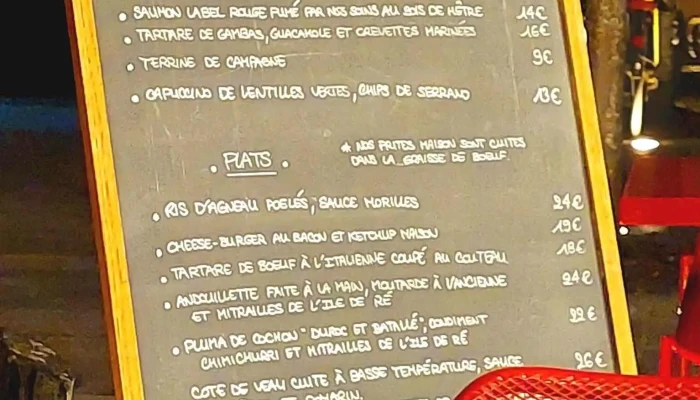 • SAUMON LABEL ROUGE FUMÉ PAR NOS SOINS AU BOIS DE HÊTRE 14€
• TARTARE DE GAMBAS, GUACAMOLE ET CREVETTES MARINÉES 16€
• TERRINE DE CAMPAGNE 9€
• CAPUCCINO DE LENTILLES VERTES, CHIPS DE SERRANO 13€
• PLATS •
* NOS FRITES MAISON SONT CUITES
DANS LA GRAISSE DE BOEUF.
• RIS D'AGNEAU POELÉS, SAUCE MORILLES 24€
• CHEESE-BURGER AU BACON ET KETCHUP MAISON 19€
• TARTARE DE BOEUF À L'ITALIENNE COUPÉ AU COUTEAU 18€
• ANDOUILLETTE FAITE À LA MAIN, MOUTARDE À L'ANCIENNE 24€
ET MITRAILLES DE L'ILE DE RÉ
• PLUMA DE COCHON "DUROC ET BATALLÉ", CONDIMENT 22€
CHIMICHURRI ET MITRAILLES DE L'ILE DE RÉ
COTE DE VEAU CUITE À BASSE TEMPÉRATURE, SAUCE 26€
ROMARIN,